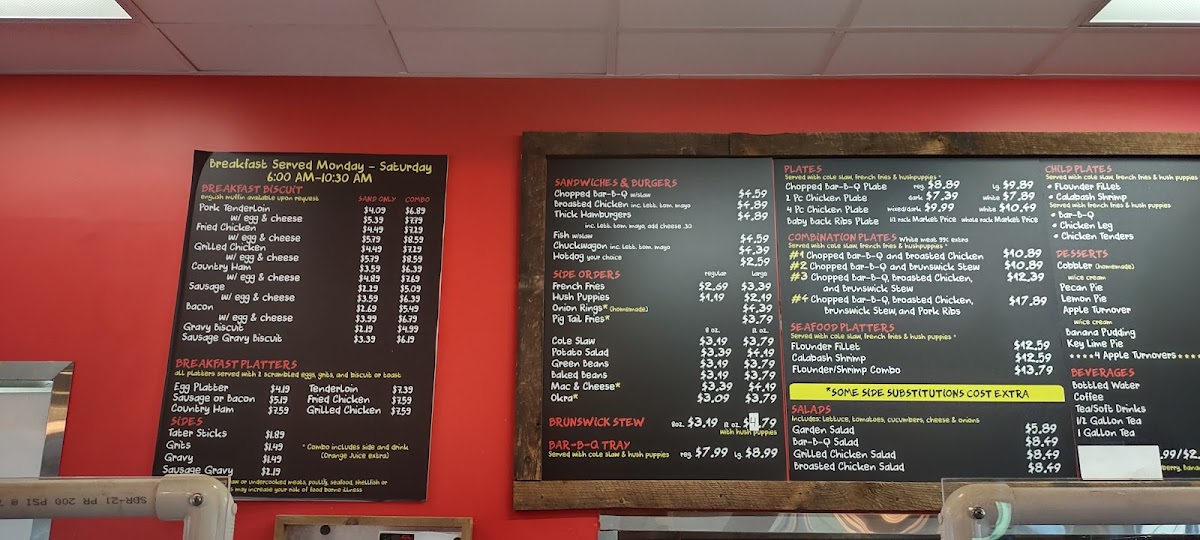 Breakfast Served Monday - Saturday
6:00 AM-10:30 AM
BREAKFAST BISCUIT
english muffin available upon request SAND ONLY COMBO
Pork Tenderloin $4.09 $6.89
w/ egg & cheese $5.39 $7.79
Fried Chicken $4.49 $7.29
w/ egg & cheese $5.79 $8.59
Grilled Chicken $4.49 $7.29
w/ egg & cheese $5.79 $8.59
Country Ham $3.59 $6.39
w/ egg & cheese $4.89 $7.69
Sausage $2.29 $5.09
w/ egg & cheese $3.59 $6.39
Bacon $2.69 $5.49
w/ egg & cheese $3.99 $6.79
Gravy Biscuit $2.19 $4.99
Sausage Gravy Biscuit $3.39 $6.19
BREAKFAST PLATTERS
all platters served with 2 scrambled eggs, grits, and biscuit or toast
Egg Platter $4.19 Tenderloin $7.39
Sausage or Bacon $5.19 Fried Chicken $7.59
Country Ham $7.59 Grilled Chicken $7.59
SIDES
Tater Sticks $1.89
Grits $1.49 * Combo includes side and drink
Gravy $1.49 (Orange Juice extra)
Sausage Gravy $2.19
aw or undercooked meats, poultry, seafood, shellfish or
may increase your risk of food borne illness
SANDWICHES & BURGERS
Chopped Bar-B-Q w/slaw $4.59
Broasted Chicken inc. lett. tom. mayo $4.89
Thick Hamburgers $4.89
inc. lett. tom. mayo, add cheese .30
Fish w/slaw $4.59
Chuckwagon inc. lett. tom. mayo $4.39
Hotdog your choice $2.59
SIDE ORDERS regular large
French Fries $2.69 $3.39
Hush Puppies $1.49 $2.19
Onion Rings* (homemade) $4.39
Pig Tail Fries* $3.79
8 oz. 12 oz.
Cole Slaw $3.19 $3.79
Potato Salad $3.39 $4.19
Green Beans $3.19 $3.79
Baked Beans $3.19 $3.79
Mac & Cheese* $3.39 $4.19
Okra* $3.09 $3.79
BRUNSWICK STEW 8oz. $3.19 12 oz. $4.79
with hush puppies
BAR-B-Q TRAY
Served with cole slaw & hush puppies reg. $7.99 lg. $8.99
PLATES
Served with cole slaw, french fries & hushpuppies *
Chopped Bar-B-Q Plate reg $8.89 lg. $9.89
2 Pc Chicken Plate dark $7.39 white $7.89
4 Pc Chicken Plate mixed/dark $9.99 white $10.49
Baby Back Ribs Plate 1/2 rack Market Price whole rack Market Price
COMBINATION PLATES White meat 99¢ extra
Served with cole slaw, french fries & hushpuppies *
#1 Chopped Bar-B-Q and Broasted Chicken $10.89
#2 Chopped Bar-B-Q and Brunswick Stew $10.89
#3 Chopped Bar-B-Q, Broasted Chicken, $12.39
and Brunswick Stew
#4 Chopped Bar-B-Q, Broasted Chicken, $17.89
Brunswick Stew, and Pork Ribs
SEAFOOD PLATTERS
Served with cole slaw, french fries & hush puppies *
Flounder Fillet $12.59
Calabash Shrimp $12.59
Flounder/Shrimp Combo $13.79
*SOME SIDE SUBSTITUTIONS COST EXTRA
SALADS
Includes: Lettuce, tomatoes, cucumbers, cheese & onions
Garden Salad $5.89
Bar-B-Q Salad $8.49
Grilled Chicken Salad $8.49
Broasted Chicken Salad $8.49
CHILD PLATES
Served with cole slaw, french fries & hush puppies
• Flounder Fillet
• Calabash Shrimp
Served with french fries & hush puppies
• Bar-B-Q
• Chicken Leg
• Chicken Tenders
DESSERTS
Cobbler (homemade)
w/ice cream
Pecan Pie
Lemon Pie
Apple Turnover
w/ice cream
Banana Pudding
Key Lime Pie
****4 Apple Turnovers****
BEVERAGES
Bottled Water
Coffee
Tea/Soft Drinks
1/2 Gallon Tea
1 Gallon Tea
.99/$2.
SDR-21 PR 200 PSI @